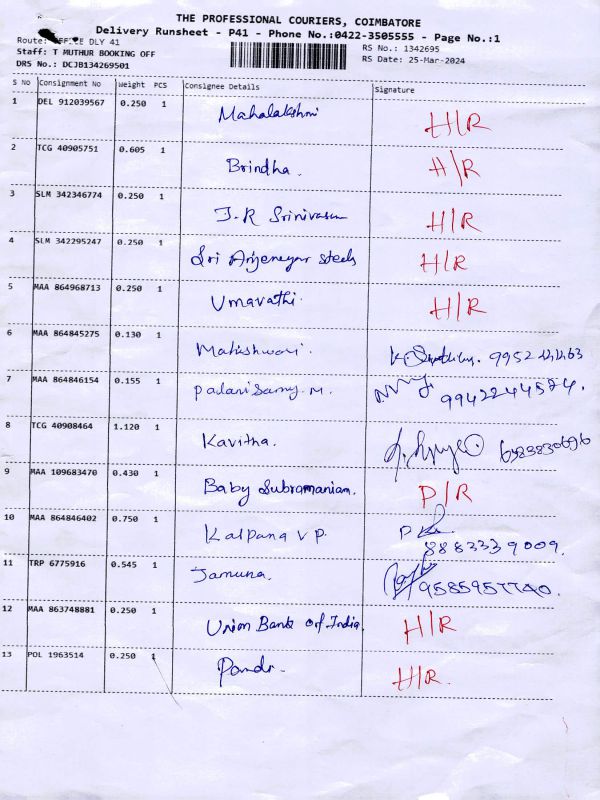 THE PROFESSIONAL COURIERS, COIMBATORE
Delivery Runsheet - P41 - Phone No.:0422-3505555 - Page No.:1
Route: OFFICE DLY 41
RS No.: 1342695
Staff: T MUTHUR BOOKING OFF
RS Date: 25-Mar-2024
DRS No.: DCJB134269501
S No Consignment No Weight PCS Consignee Details Signature
1 DEL 912039567 0.250 1 Mahalakshmi H/R
2 TCG 40905751 0.605 1 Brindha. H/R
3 SLM 342346774 0.250 1 J.R Srinivasan H/R
4 SLM 342295247 0.250 1 Sri Anjeneyar steels H/R
5 MAA 864968713 0.250 1 Umavathi. H/R
6 MAA 864845275 0.130 1 Maheshwari.
7 MAA 864846154 0.155 1 Palanisamy. M. 9942244574.
8 TCG 40908464 1.120 1 Kavitha.
9 MAA 109683470 0.430 1 Baby Subramaniam. P/R
10 MAA 864846402 0.750 1 Kalpana V P. 8883339009.
11 TRP 6775916 0.545 1 Jamuna. 9585957740.
12 MAA 863748881 0.250 1 Union Bank of India. H/R
13 POL 1963514 0.250 1 H/R.